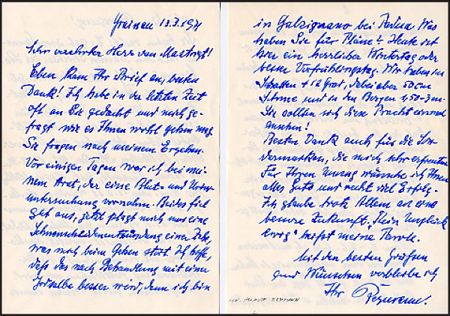 Grainau 13.3.1971
Sehr verehrter Herr van Mastrigt!
Eben kam Ihr Brief an, besten
Dank! Ich habe in der letzten Zeit
oft an Sie gedacht und mich ge-
fragt wie es Ihnen wohl gehen mag.
Sie fragen nach meinem Ergehen.
Vor einigen Tagen war ich bei mei-
nem Arzt, der eine Blut- und Urin-
untersuchung vornahm. Beides fiel
gut aus, jetzt plagt mich nur eine
Sehnenscheidenentzündung einer Zehe,
was mich beim Gehen stört. Ich hoffe,
daß das nach Behandlung mit einer
besser wird, denn ich bin
in Galzignano bei Padua. Was
haben Sie für Pläne? Heute ist
hier ein herrlicher Wintertag oder
besser Vorfrühlingstag. Wir haben im
Schatten +12 Grad, dabei aber 50 cm
Schnee und in den Bergen 1,50-3 m.
Sie sollten sich diese Pracht einmal
ansehen!
Besten Dank auch für die Son-
dermarken, die mich sehr erfreuten.
Für Ihren Umzug wünsche ich Ihnen
alles Gute und recht viel Erfolg.
Ich glaube trotz Allem an eine
bessere Zukunft. "Kein Unglück
ewig" heißt meine Parole.
Mit den besten Grüßen
und Wünschen verbleibe ich
Ihr Reymann.